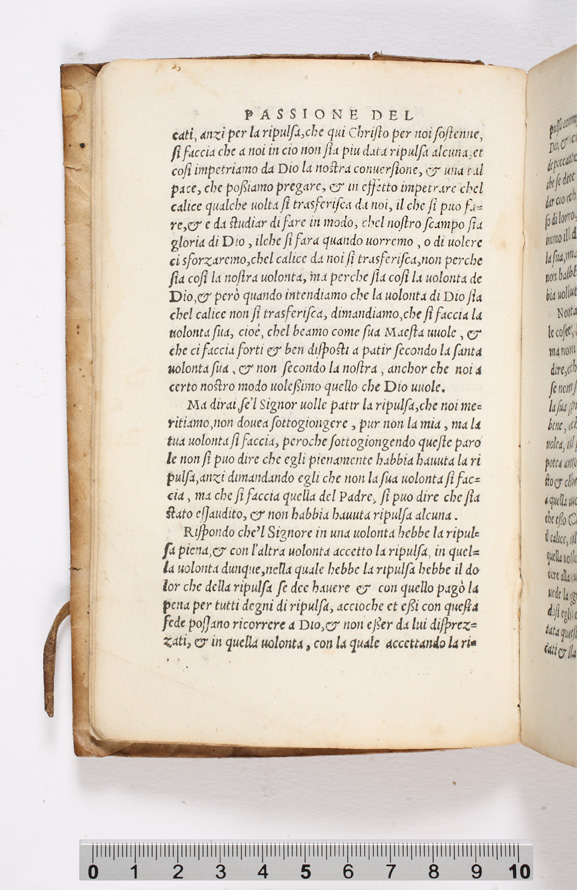 PASSIONE DEL
cati, anzi per la ripulſa, che qui Chriſto per noi ſoſtenne,
ſi faccia che a noi in cio non ſia piu data ripulſa alcuna, et
coſi impetriamo da Dio la noſtra conuerſione, & una tal
pace, che poßiamo pregare, & in effetto impetrare chel
calice qualche uolta ſi trasferiſca da noi, il che ſi puo fa=
re, & e da ſtudiar di fare in modo, chel noſtro ſcampo ſia
gloria di Dio, ilche ſi fara quando uorremo, o di uolere
ci sforzaremo, chel calice da noi ſi trasferiſca, non perche
ſia coſi la noſtra uolonta, ma perche ſia coſi la uolonta de
Dio, & però quando intendiamo che la uolonta di Dio ſia
chel calice non ſi trasferiſca, dimandiamo, che ſi faccia la
uolonta ſua, cioè, chel beamo come ſua Maeſta uuole, &
che ci faccia forti & ben diſpoſti a patir ſecondo la ſanta
uolonta ſua, & non ſecondo la noſtra, anchor che noi a
certo noſtro modo uoleßimo quello che Dio uuole.
Ma dirai, ſe'l Signor uolle patir la ripulſa, che noi me=
ritiamo, non douea ſottogiongere, pur non la mia, ma la
tua uolonta ſi faccia, peroche ſottogiongendo queſte paro
le non ſi puo dire che egli pienamente habbia hauuta la ri
pulſa, anzi dimandando egli che non la ſua uolonta ſi fac=
cia, ma che ſi faccia quella del Padre, ſi puo dire che ſia
ſtato eſſaudito, & non habbia hauuta ripulſa alcuna.
Riſpondo che'l Signore in una uolonta hebbe la ripul=
ſa piena, & con l'altra uolonta accetto la ripulſa, in quel=
la uolonta dunque, nella quale hebbe la ripulſa hebbe il do
lor che della ripulſa ſe dee hauere & con quello pagò la
pena per tutti degni di ripulſa, accioche et eßi con queſta
fede poſſano ricorrere a Dio, & non eßer da lui diſprez=
zati, & in quella uolonta, con la quale accettando la ri=
0 1 2 3 4 5 6 7 8 9 10